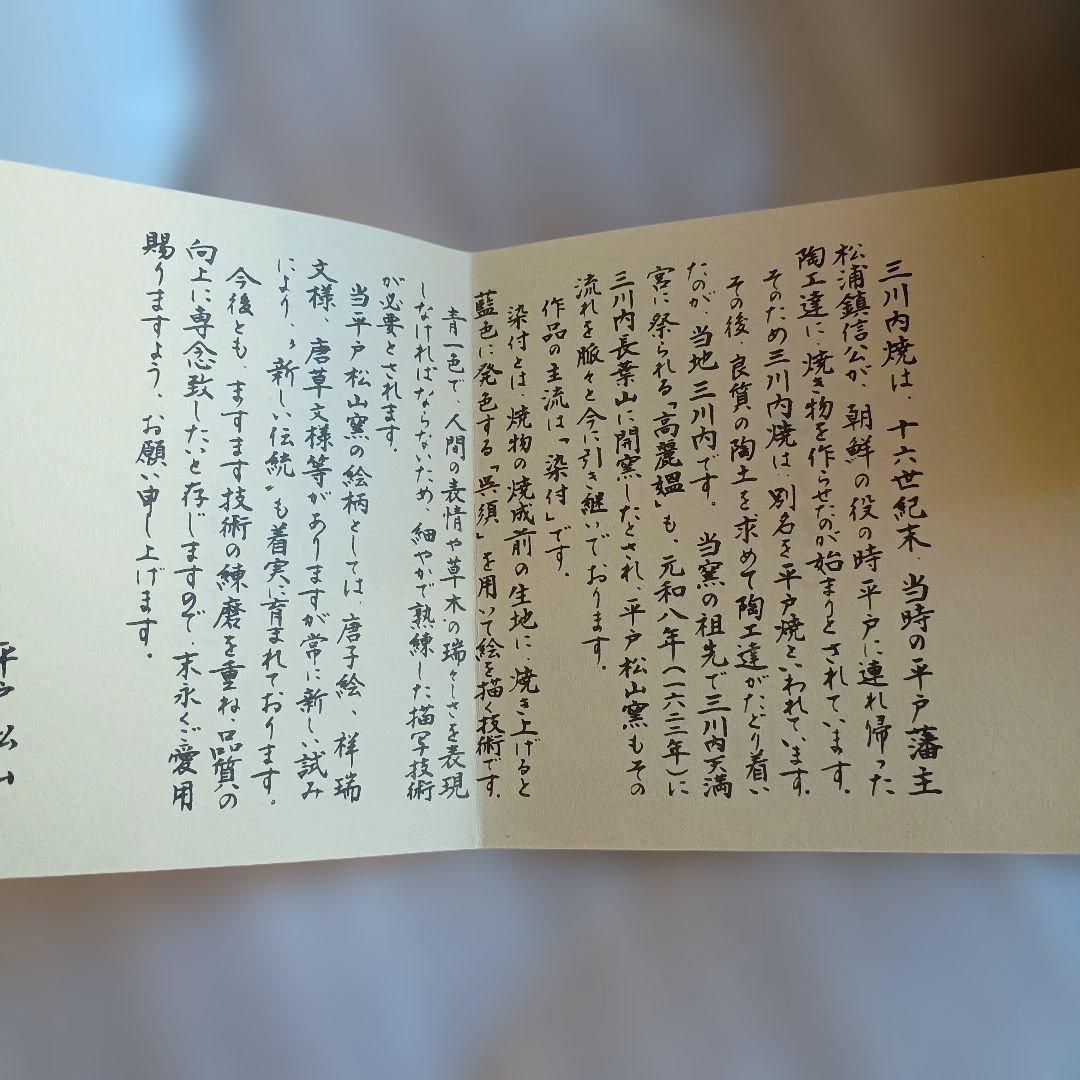 三川内焼は、十六世紀末 当時の平戸藩主
松浦鎮信公が、朝鮮の役の時平戸に連れ帰った
陶工達に、焼き物を作らせたのが始まりとされています。
そのため三川内焼は、別名を平戸焼といわれています。
その後、良質の陶土を求めて陶工達がたどり着い
たのが、当地 三川内です。 当窯の祖先で三川内天満
宮に祭られる「高麗媼」も、元和八年(一六二二年)に
三川内長葉山に開窯したとされ、平戸松山窯もその
流れを脈々と今に引き継いでおります。
作品の主流は「染付」です。
染付とは、焼物の焼成前の生地に、焼き上げると
藍色に発色する「呉須」を用いて絵を描く技術です。
青一色で、人間の表情や草木の瑞々しさを表現
しなければならないため、細やかで熟練した描写技術
が必要とされます。
当平戸松山窯の絵柄としては、唐子絵、祥瑞
文様、唐草文様等がありますが常に新しい試み
により、〝新しい伝統〟も着実に育まれております。
今後とも、ますます技術の練磨を重ね、品質の
向上に専念致したいと存じますので、末永くご愛用
賜りますよう、お願い申し上げます。
平戸松山